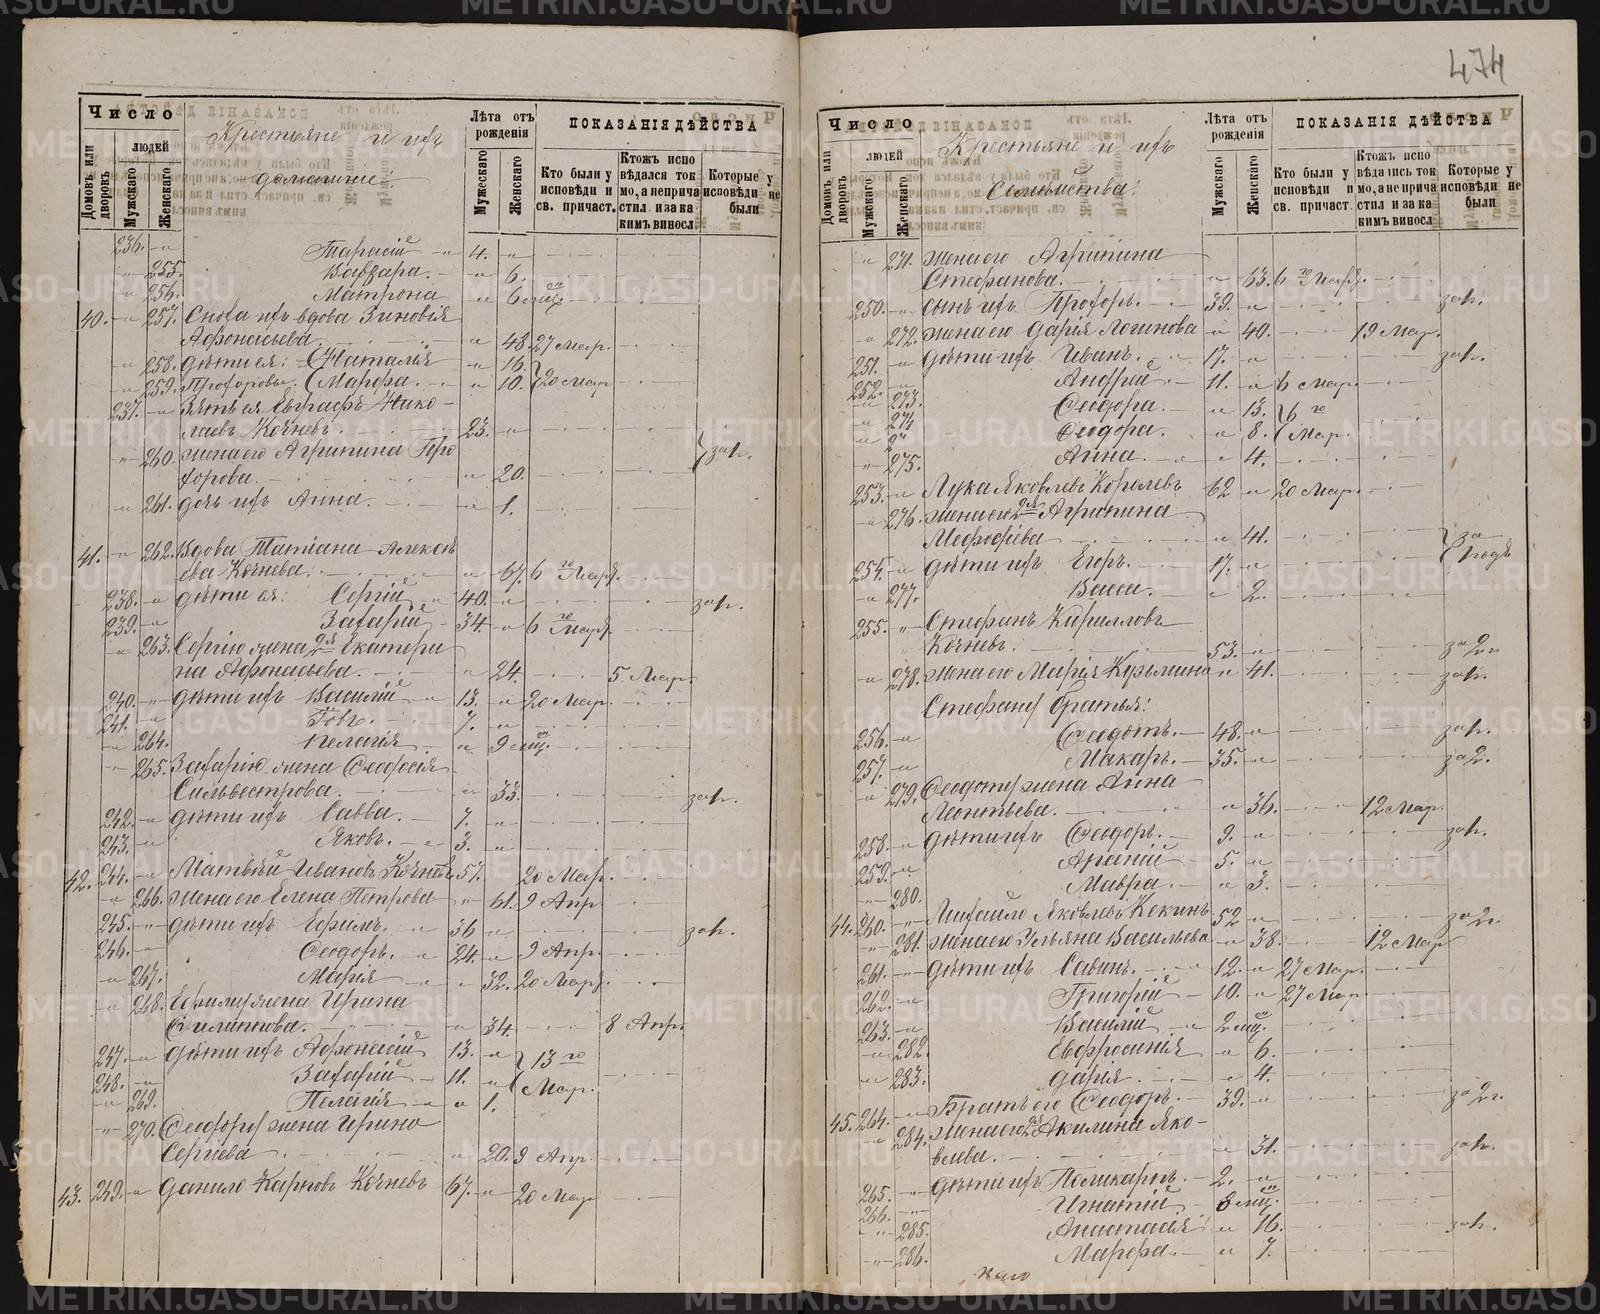 474
Число
людей
Домовъ или дворовъ
Мужскаго
Женскаго
Крестьяне и ихъ
домашніе:
Лѣта отъ рожденія
Мужескаго
Женскаго
ПОКАЗАНІЯ ДѢЙСТВА
Кто были у исповѣди и св. причаст.
Ктожъ исповѣдался токмо, а не причастил. и за какимъ винослов.
Которые у исповѣди не были
236. Тарасій 4.
255. Варвара. 6.
256. Матрона 6 мц.
40. 257. Сноха ихъ вдова Зиновія
Аѳонасьева. 48. 27 Мар.
258. дѣти ея: Наталія 16.
259. Прохоровы. Марѳа. 10. 20 Мар.
237. Зять ея Евграфъ Нико-
лаевъ Кочневъ. 23.
260. жена его Агрипина Про
хорова. 20.
261. дочь ихъ Анна. 1.
41. 262. Вдова Татіана Алексѣ
ева Кочнева. 67. 6 го Мар.
238. дѣти ея: Сергій 40.
239. Захарій 34. 6 го Мар.
263. Сергію жена 2я Екатери
на Аѳонасьева. 24. 5 Мар.
240. дѣти ихъ Василій 13. 20 Мар.
241. Іовъ. 7.
264. Пелагія 9 мц.
265. Захарію жена Ѳеодосія
Сильвестрова. 33.
242. дѣти ихъ Савва. 7.
243. Яковъ. 3.
42. 244. Матвѣй Ивановъ Кочневъ 57. 20 Мар.
266. жена его Елена Петрова 61. 9 Апр.
245. дѣти ихъ Ефимъ. 36
246. Ѳеодоръ. 24. 9 Апр.
267. Марія 32. 20 Мар.
268. Ефиму жена Ирина
Филиппова. 34. 8 Апр.
247. дѣти ихъ Аѳонасій 13. 13 го
248. Захарій 11. Мар.
269. Пелагія 1.
270. Ѳеодору жена Ирина
Сергіева 20. 9 Апр.
43. 249. Данило Карповъ Кочневъ 67. 20 Мар.
Число
людей
Домовъ или дворовъ
Мужскаго
Женскаго
Крестьяне и ихъ
Семейства:
Лѣта отъ рожденія
Мужскаго
Женскаго
ПОКАЗАНІЯ ДѢЙСТВА
Кто были у исповѣди и св. причаст.
Ктожъ исповѣдались токмо, а не причастил. и за какимъ винослов.
Которые у исповѣди не были
271. жена его Агрипина
Стефанова. 63. 6 го Мар.
250. сынъ ихъ Прохоръ. 39.
272. жена его Дарія Логинова 40. 19 Мар.
251. дѣти ихъ Иванъ. 17.
252. Андрей 11. 6 Мар.
273. Ѳеодора. 13. 6 го
274 Ѳеодора. 8. Мар.
275. Анна. 4.
253. Лука Яковлевъ Королевъ 62 20 Мар.
276. жена его 2я Агрипина
Меѳодіева 41.
254. дѣти ихъ Егоръ. 17.
277. Васса. 2.
255. Стефанъ Кирилловъ
Кочневъ. 53. за 2.
278. жена его Марія Кузьмина 41.
Стефану братья:
256. Ѳеодотъ. 48.
257. Макаръ. 35. за 2.
279. Ѳеодоту жена Анна
Леонтьева. 36. 12 Мар.
258. дѣти ихъ Ѳеодоръ. 9.
259. 5.
280. Мавра. 3.
44. 260. Михайло Яковлевъ Кекинъ 52 за 2.
281. жена его Ульяна Васильева 38. 12 Мар
261. дѣти ихъ Савинъ. 12. 27 Мар.
262. Григорій 10. 27 Мар
263. Василій 2 мц.
282. Евфросинія 6.
283. Дарія. 4.
45. 264. Братъ его Ѳеодоръ. 39. за 2.
284. жена его 2я Акилина Яко-
влева. 31.
265. дѣти ихъ Поликарпъ. 2.
266. Игнатій 8 мц.
285. Анастасія 16.
286. Марѳа. 7.
METRIKI.GASO-URAL.RU